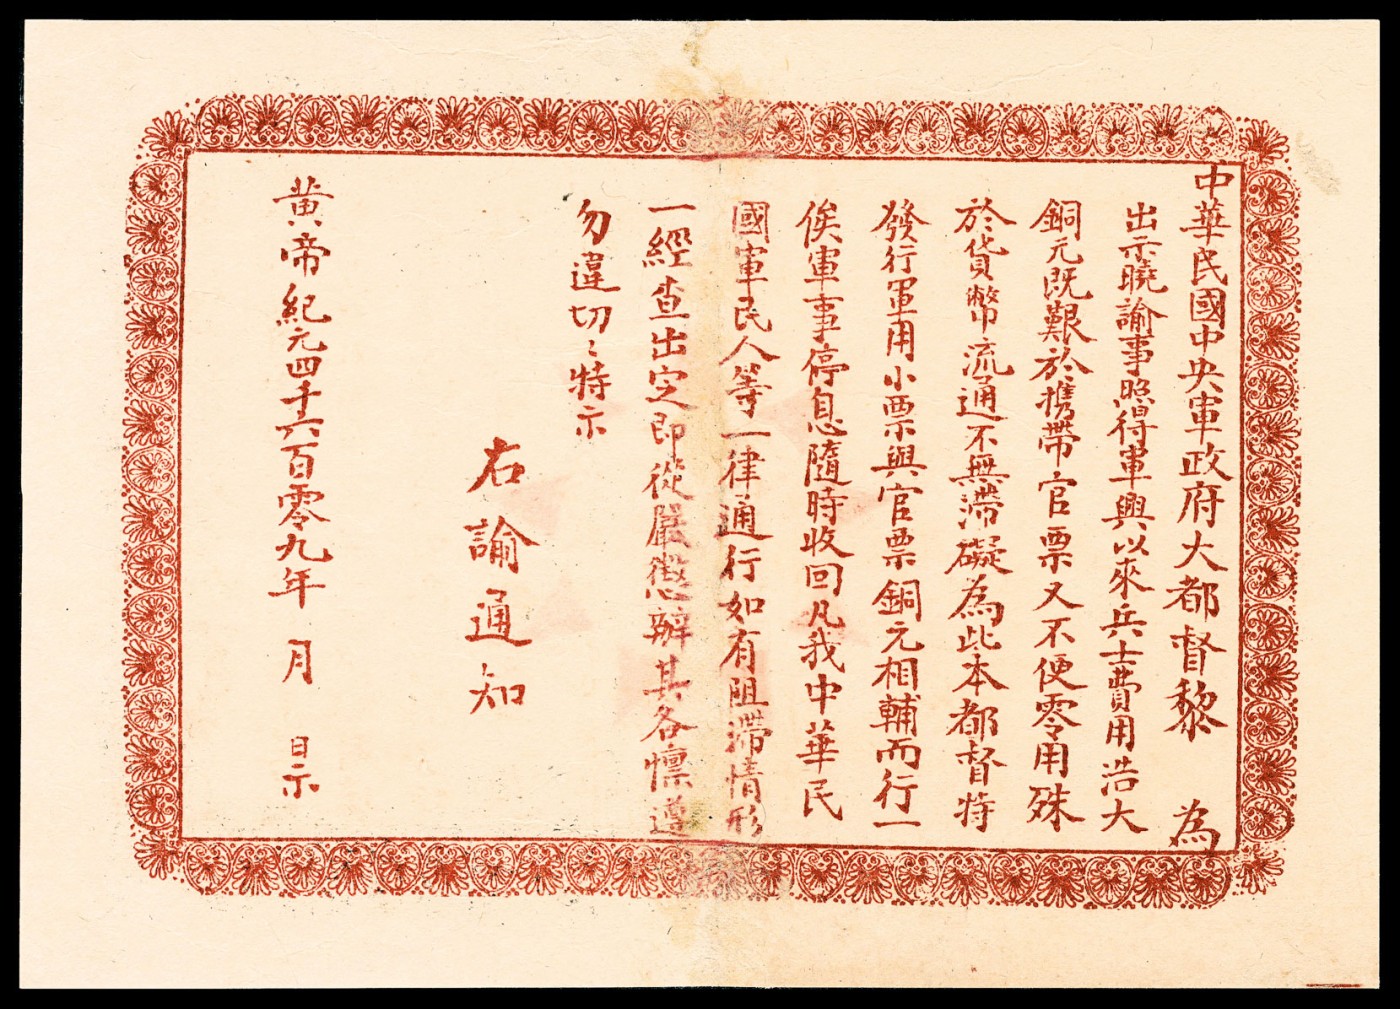 中華民國中央軍政府大都督黎　為
出示曉諭事照得軍興以來兵士費用浩大
銅元既艱於攜帶官票又不便零用殊
於貨幣流通不無滯礙為此本都督特
發行軍用小票與官票銅元相輔而行一
俟軍事停息隨時收回凡我中華民
國軍民人等一律通行如有阻滯情形
一經查出定即從嚴懲辦其各懍遵
勿違切〻特示
右諭通知
黃帝紀元四千六百零九年　月　日示